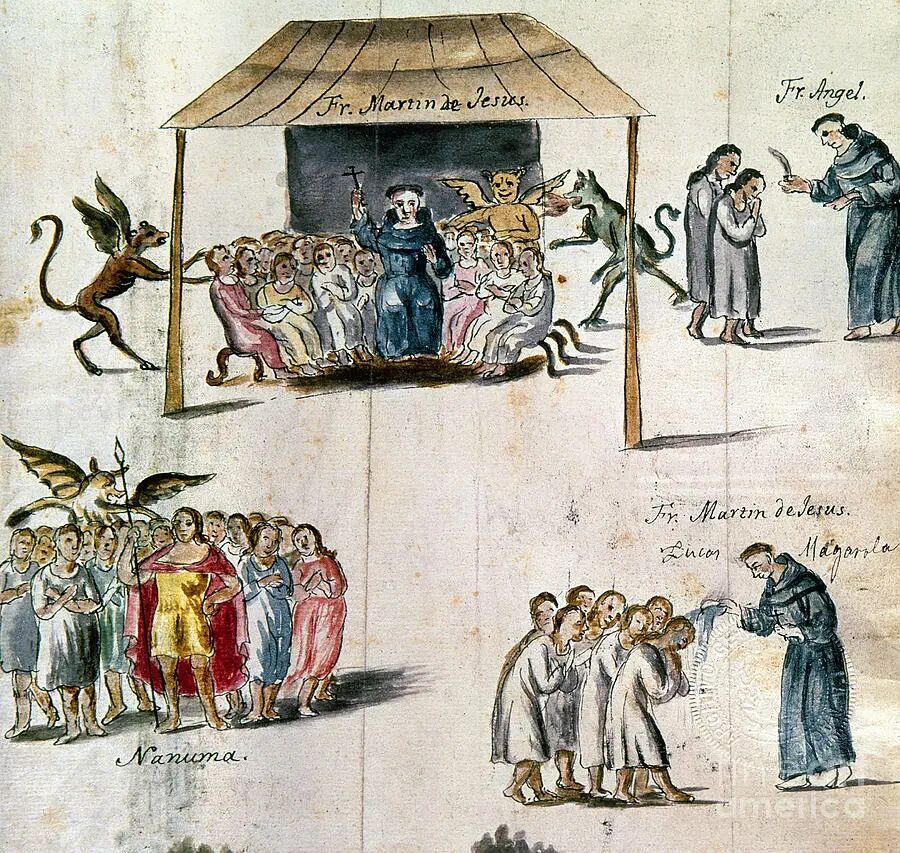 Fr. Martin de Jesus.
Fr. Angel.
Fr. Martin de Jesus.
Lucas Magarola
Nanuma.